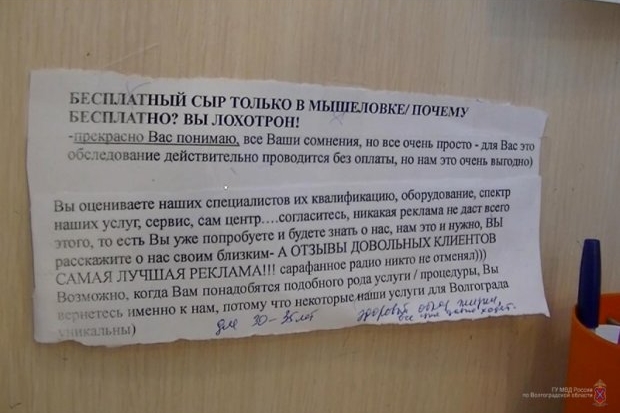 БЕСПЛАТНЫЙ СЫР ТОЛЬКО В МЫШЕЛОВКЕ/ ПОЧЕМУ
БЕСПЛАТНО? ВЫ ЛОХОТРОН!
-прекрасно Вас понимаю, все Ваши сомнения, но все очень просто - для Вас это
обследование действительно проводится без оплаты, но нам это очень выгодно)
Вы оцениваете наших специалистов их квалификацию, оборудование, спектр
наших услуг, сервис, сам центр….согласитесь, никакая реклама не даст всего
этого, то есть Вы уже попробуете и будете знать о нас, нам это и нужно, ВЫ
расскажите о нас своим близким- А ОТЗЫВЫ ДОВОЛЬНЫХ КЛИЕНТОВ
САМАЯ ЛУЧШАЯ РЕКЛАМА!!! сарафанное радио никто не отменял)))
Возможно, когда Вам понадобятся подобного рода услуги / процедуры, Вы
вернетесь именно к нам, потому что некоторые наши услуги для Волгограда
уникальны)
для 30-35 лет
здоровый образ жизни,
все
ГУ МВД России
по Волгоградской области